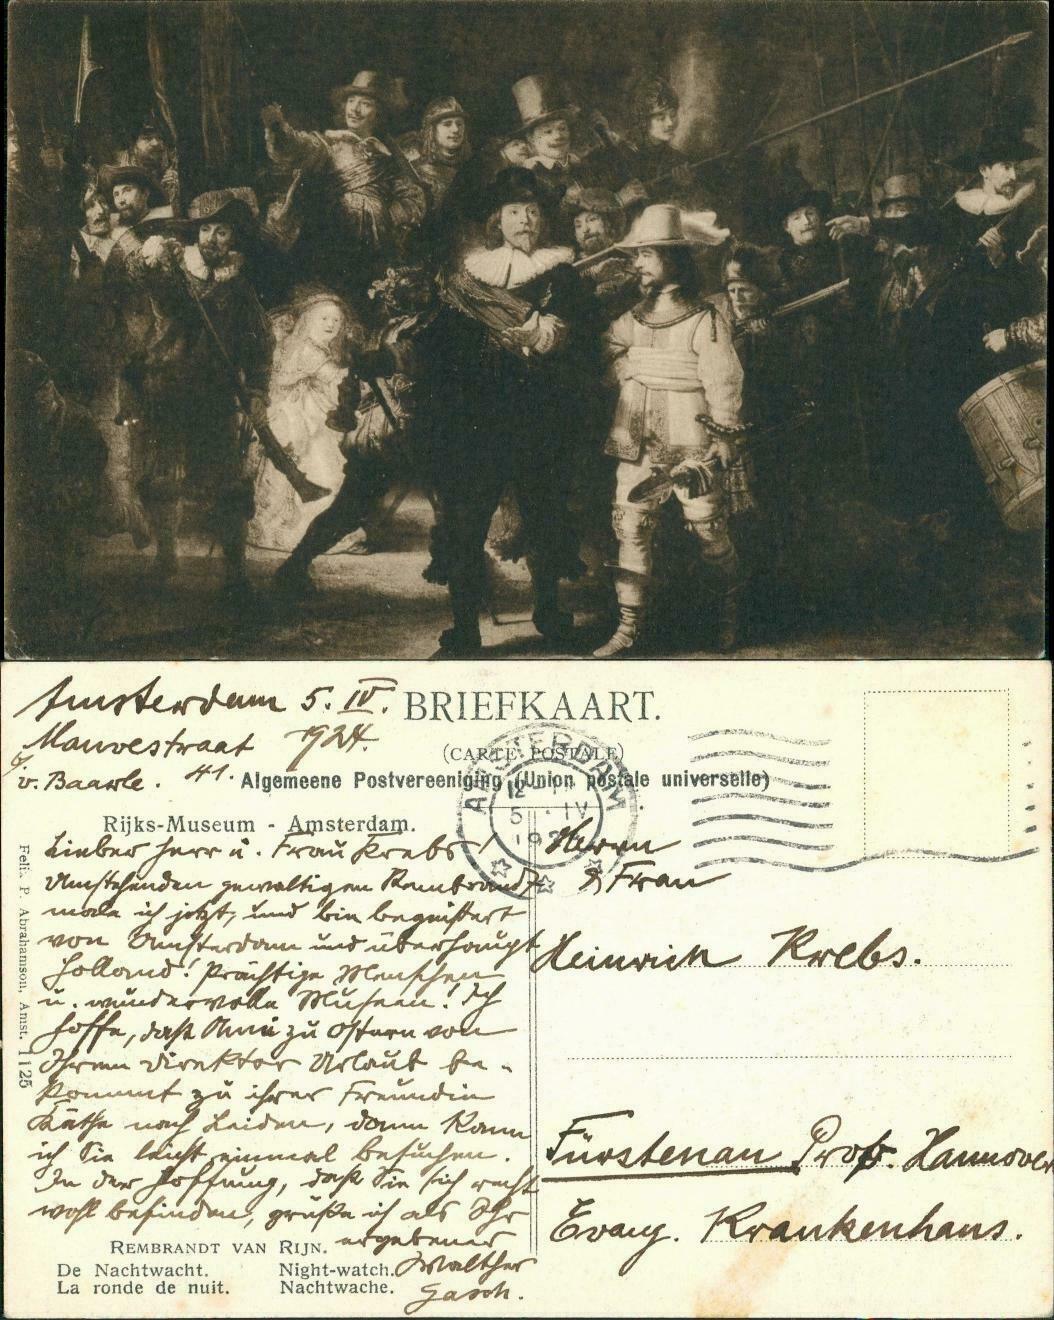 Amsterdam 5. IV.
1924.
Mauvestraat
41.
b/. v. Baarle.
BRIEFKAART.
(CARTE POSTALE)
Algemeene Postvereeniging (Union postale universelle)
Rijks-Museum - Amsterdam.
AMSTERDAM
12
5 · IV
192
Lieber Herr u. Frau Krebs!
Umstehenden gewaltigen Rembrandt
male ich jetzt, und bin begeistert
von Amsterdam und überhaupt
Holland! Prächtige Menschen
u. wundervolle Museen! Ich
hoffe, daß Anni zu Ostern von
Ihrem Direktor Urlaub be-
kommt zu ihrer Freundin
Käthe nach Leiden, dann kann
ich Sie leicht einmal besuchen.
In der Hoffnung, daß Sie sich recht
wohl befinden, grüße ich als Ihr
ergebener
Walther
Gasch.
Herrn
& Frau
Heinrich Krebs.
Fürstenau Prov. Hannover
Evang. Krankenhaus.
REMBRANDT VAN RIJN.
De Nachtwacht. Night-watch.
La ronde de nuit. Nachtwache.
P. Abrahamson, Amst. 1125